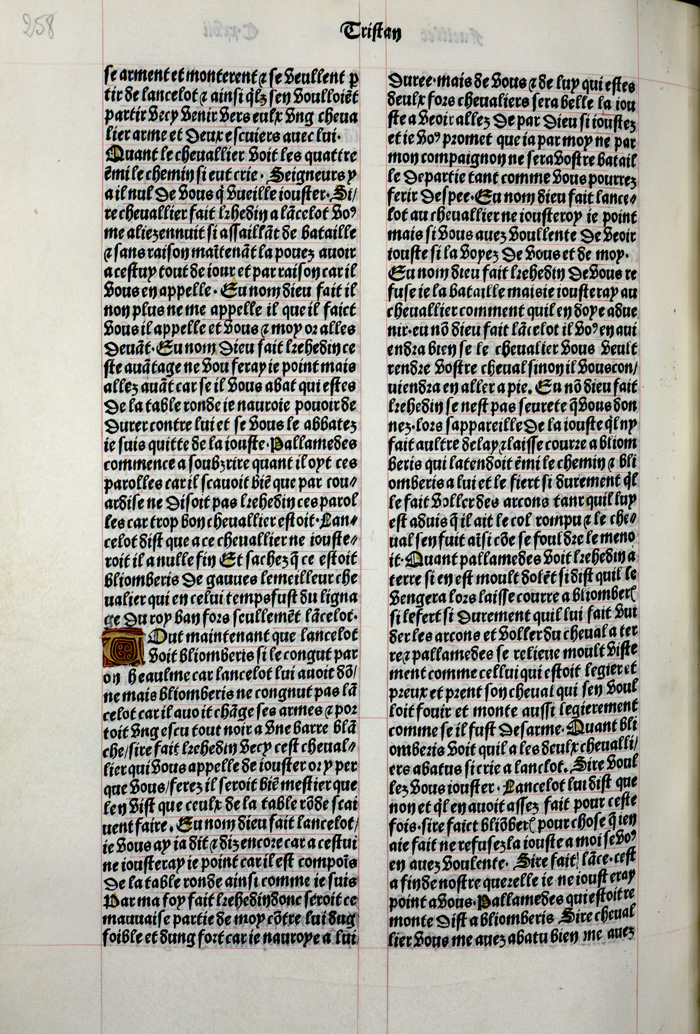 258
Tristan
se arment et monterent ⁊ se veullent p
tir de lancelot ⁊ ainsi qlz sen voulloiēt
partir vecy venir vers eulx vng cheua
lier arme et deux escuiers auec lui.
Quant le cheuallier voit les quattre
ēmi le chemin si eut crie. Seigneurs y
a il nul de vous q̄ vueille iouster. Si/
re cheuallier fait lzhedin a lācelot voꝰ
me aliez ennuit si assaillāt de bataille
⁊ sans raison maītenāt la pouez auoir
a cestuy tout de iour et par raison car il
vous en appelle. En nom dieu fait il
non plus ne me appelle il que il faict
vous il appelle et vous ⁊ moy or alles
deuāt. En nom dieu fait lzhedin ce
ste auātage ne vou feray ie point mais
allez auāt car se il vous abat qui estes
de la table ronde ie nauroie pouoir de
durer contre lui et se vous le abbatez
ie suis quitte de la iouste. Pallamedes
commence a soubzrire quant il oyt ces
parolles car il scauoit biē que par cou/
ardise ne disoit pas lzhedin ces parol
les car trop bon cheuallier estoit. Lan/
celot dist que a ce cheuallier ne iouste/
roit il a nulle fin Et sachez q̄ ce estoit
bliomberis de gaunes le meilleur che
ualier qui en celui temps fust du ligna
ge du roy ban fors seullemēt lācelot.
Tout maintenant que lancelot
voit bliomberis si le congut par
on heaulme car lancelot lui auoit dō/
ne mais bliomberis ne congnut pas lā
celot car il auoit chāge ses armes ⁊ por
toit vng escu tout noir a vne barre blā
che/sire fait lzhedin vecy cest cheual/
lier qui vous appelle de iouster or y per
que vous/ferez il seroit biē mestier que
len vist que ceulx de la table rōde scai
uent faire. En nom dieu fait lancelot/
ie vous ay ia dit ⁊ diz encore car a cestui
ne iousteray ie point car il est compoīs
de la table ronde ainsi comme ie suis
Par ma foy fait lzhedin donc seroit ce
mauuaise partie de moy cōtre lui dug
foible et dung fort car ie nauroye a lui
duree. mais de vous ⁊ de luy qui estes
deulx fors cheualiers sera belle la iou
ste a veoir allez de par dieu si ioustez
et ie voꝰ promet que ia par moy ne par
mon compaignon ne sera vostre batail
le departie tant comme vous pourrez
ferir despee. En nom dieu fait lance/
lot au cheuallier ne iousteroy ie point
mais si vous auez voullente de veoir
iouste si la voyez de vous et de moy.
En nom dieu fait lzhedin de vous re
fuse ie la bataille mais ie iousteray au
cheuallier comment quil en doye adue
nir. eu nō dieu fait lācelot il voꝰ en aui
endra bien se le cheualier vous veult
rendre vostre cheual sinon il vous con/
uiendra en aller a pie. En nō dieu fait
lzhedin se nest pas seurete q̄ vous don
nez. lors sappareille de la iouste ql ny
fait aultre delay ⁊ laisse courre a bliom
beris qui latendoit ēmi le chemin ⁊ bli
omberis a lui et le fiert si durement ql
le fait voller des arcons tant quil luy
est aduis q̄ il ait le col rompu ⁊ le che/
ual sen fuit aīsi cōe se fouldre le meno
it. Quant pallamedes voit lzhedin a
terre si en est moult dolēt si dist quil le
vengera lors laisse courre a bliomber̄
si le fert si durement quil lui fait vui
der les arcons et voller du cheual a ter
re ⁊ pallamedes se relieue moult viste
ment comme cellui qui estoit legier et
preux et prent son cheual qui sen voul
loit fouir et monte aussi legierement
comme se il fust desarme. Quant bli
omberis voit quil a les deulx cheualli/
ers abatus si crie a lanclot. Sire voul
lez vous iouster. Lancelot lui dist que
non et ql en auoit assez fait pour ceste
fois. sire faict bliōber̄ pour chose q̄ ien
aie fait ne refusez la iouste a moi se voꝰ
en auez voulente. Sire fait lāce. cest
a fin de nostre querelle ie ne iousteray
point a vous. Pallamedes qui estoit re
monte dist a bliomberis Sire cheual
lier vous me auez abatu bien me auez